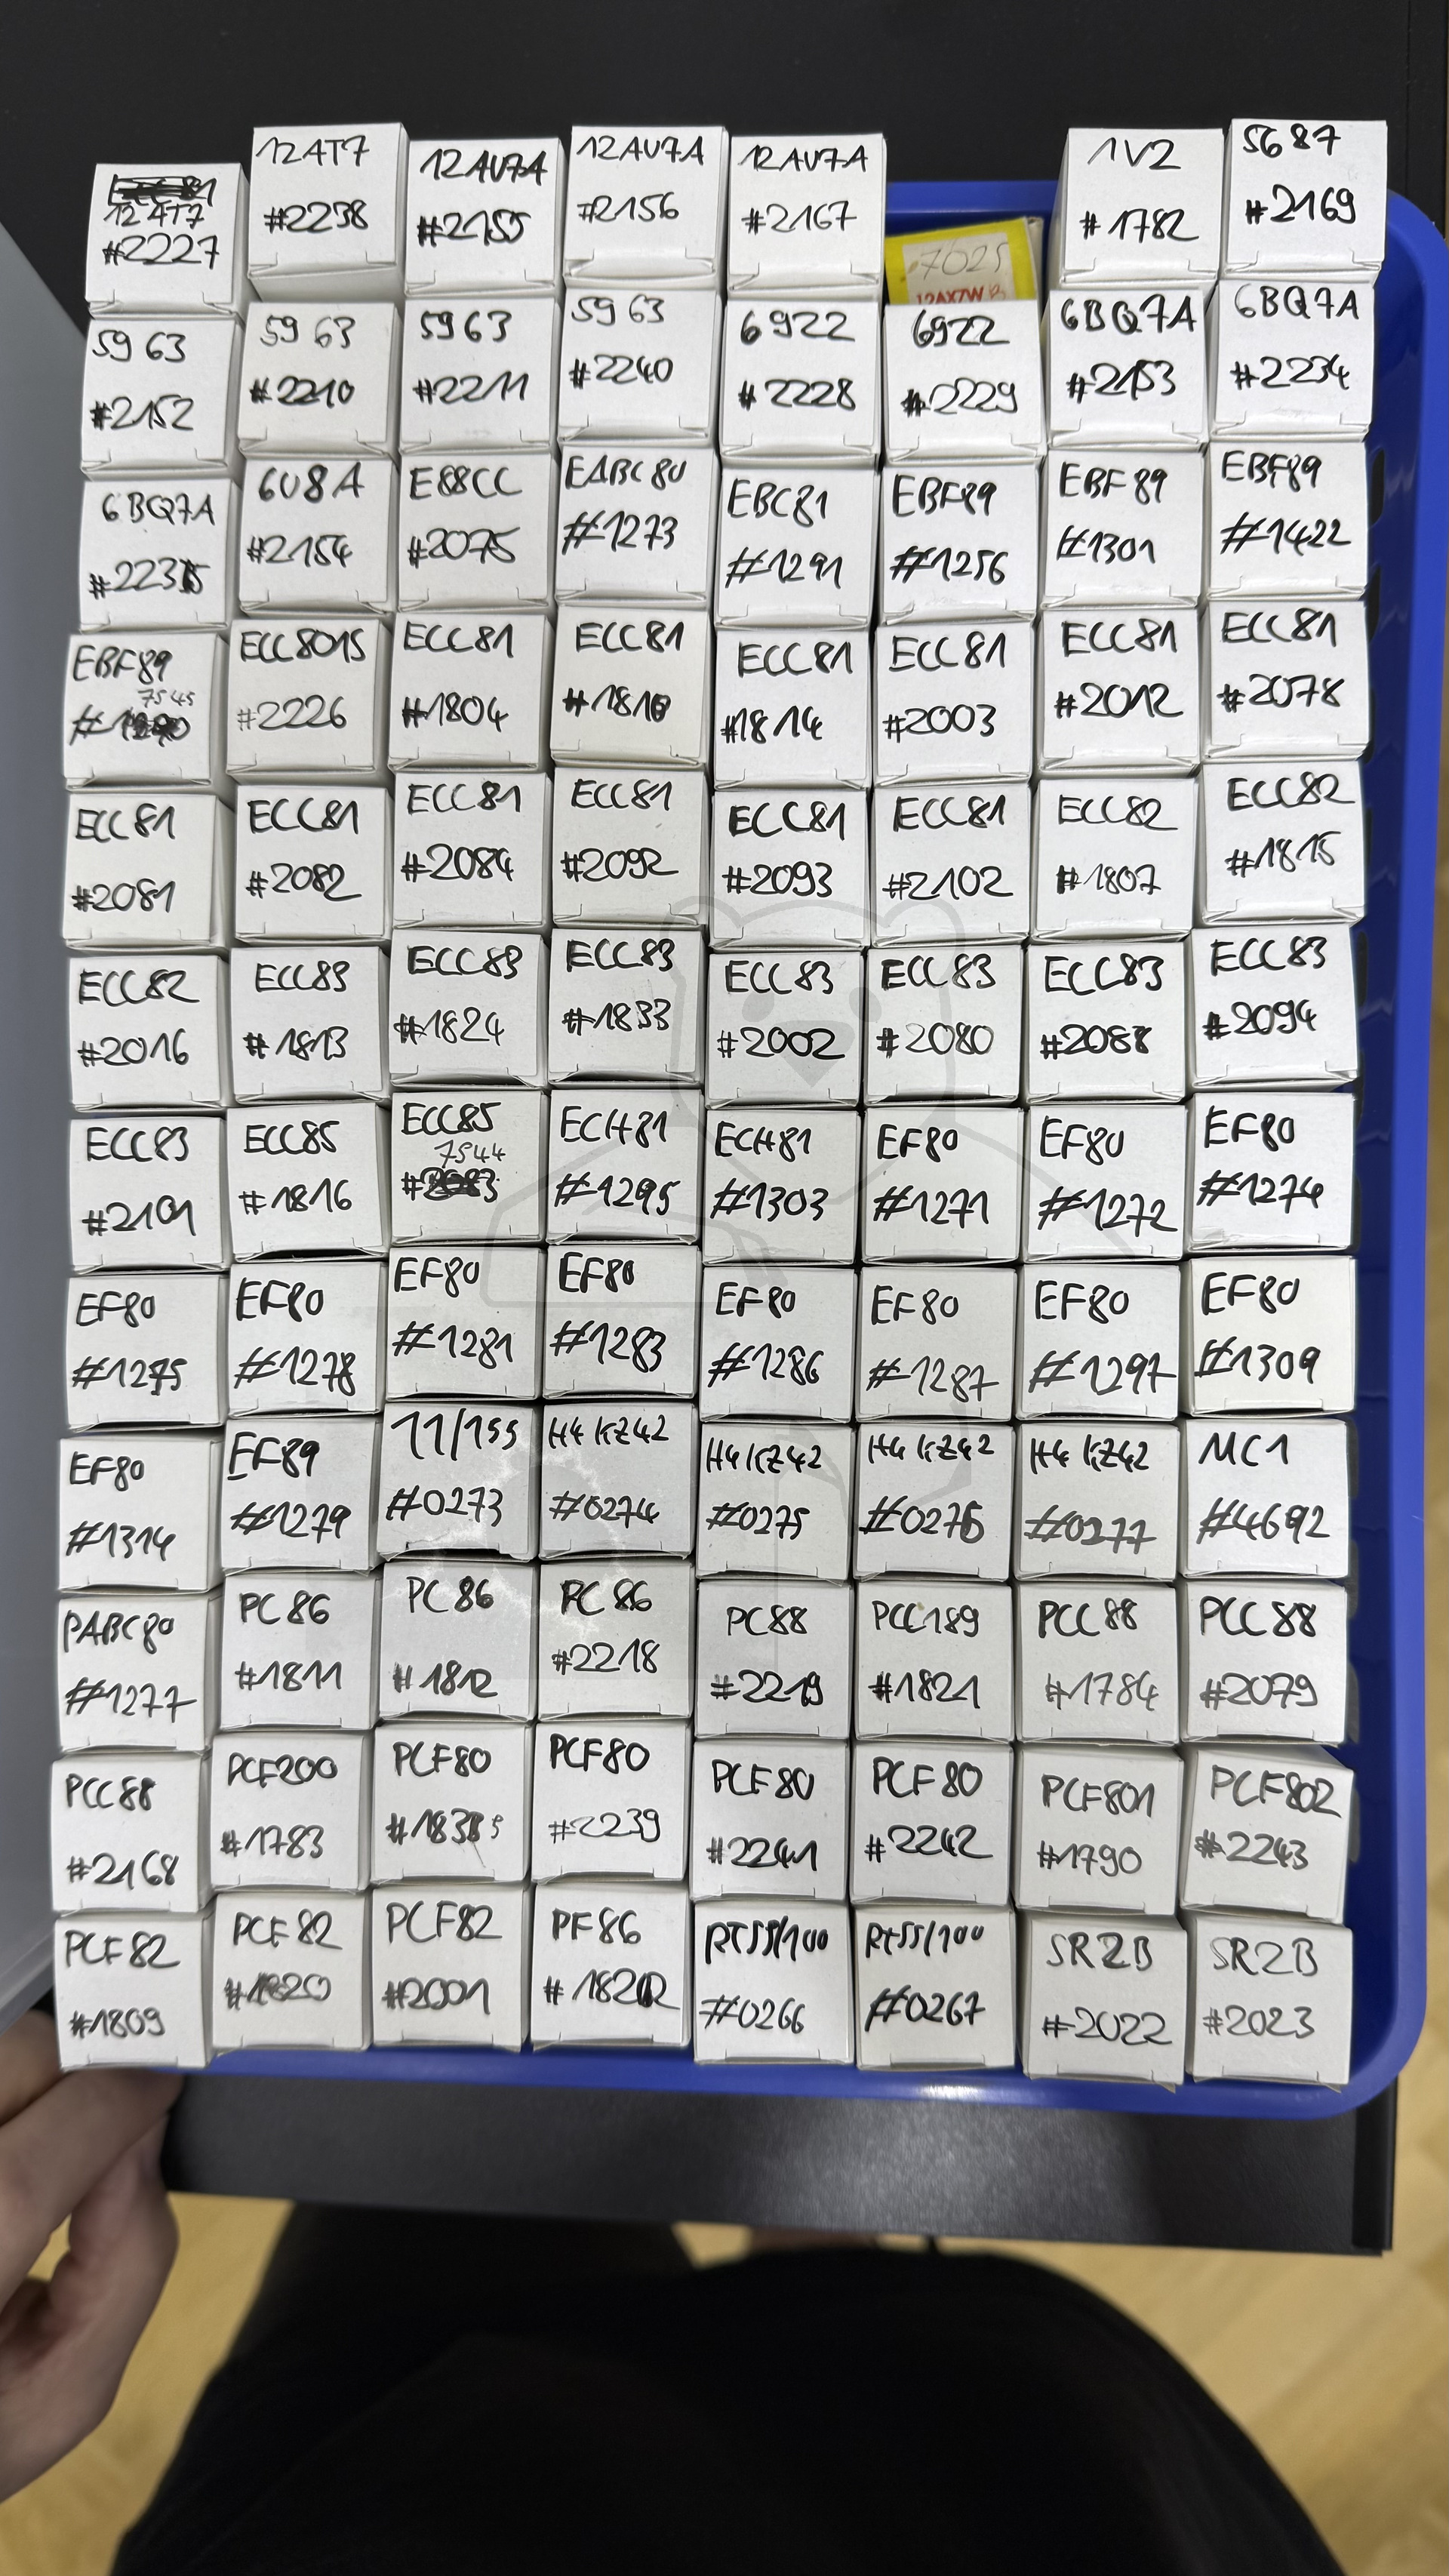 12AT7
#2227
12AT7
#2238
12AU7A
#2155
12AU7A
#2156
12AU7A
#2167
7025
12AX7WB
1V2
#1782
5687
#2169
5963
#2152
5963
#2210
5963
#2211
5963
#2240
6922
#2228
6922
#2229
6BQ7A
#2153
6BQ7A
#2234
6BQ7A
#2235
6U8A
#2154
E88CC
#2075
EABC80
#1273
EBC81
#1291
EBF89
#1256
EBF89
#1301
EBF89
#1422
EBF89
7545
ECC801S
#2226
ECC81
#1804
ECC81
#1810
ECC81
#1814
ECC81
#2003
ECC81
#2012
ECC81
#2078
ECC81
#2081
ECC81
#2082
ECC81
#2084
ECC81
#2092
ECC81
#2093
ECC81
#2102
ECC82
#1807
ECC82
#1815
ECC82
#2016
ECC83
#1813
ECC83
#1824
ECC83
#1833
ECC83
#2002
ECC83
#2080
ECC83
#2088
ECC83
#2094
ECC83
#2101
ECC85
#1816
ECC85
7544
ECH81
#1295
ECH81
#1303
EF80
#1271
EF80
#1272
EF80
#1274
EF80
#1275
EF80
#1278
EF80
#1281
EF80
#1283
EF80
#1286
EF80
#1287
EF80
#1297
EF80
#1309
EF80
#1314
EF89
#1279
11/155
#0273
H4KZ42
#0274
H4KZ42
#0275
H4KZ42
#0276
H4KZ42
#0277
MC1
#4692
PABC80
#1277
PC86
#1811
PC86
#1812
PC86
#2218
PC88
#2219
PCC189
#1821
PCC88
#1784
PCC88
#2079
PCC88
#2168
PCF200
#1783
PCF80
PCF80
#2239
PCF80
#2241
PCF80
#2242
PCF801
#1790
PCF802
#2243
PCF82
#1809
PCF82
#1820
PCF82
#2001
PF86
RT55/100
#0266
RT55/100
#0267
SRZB
#2022
SRZB
#2023